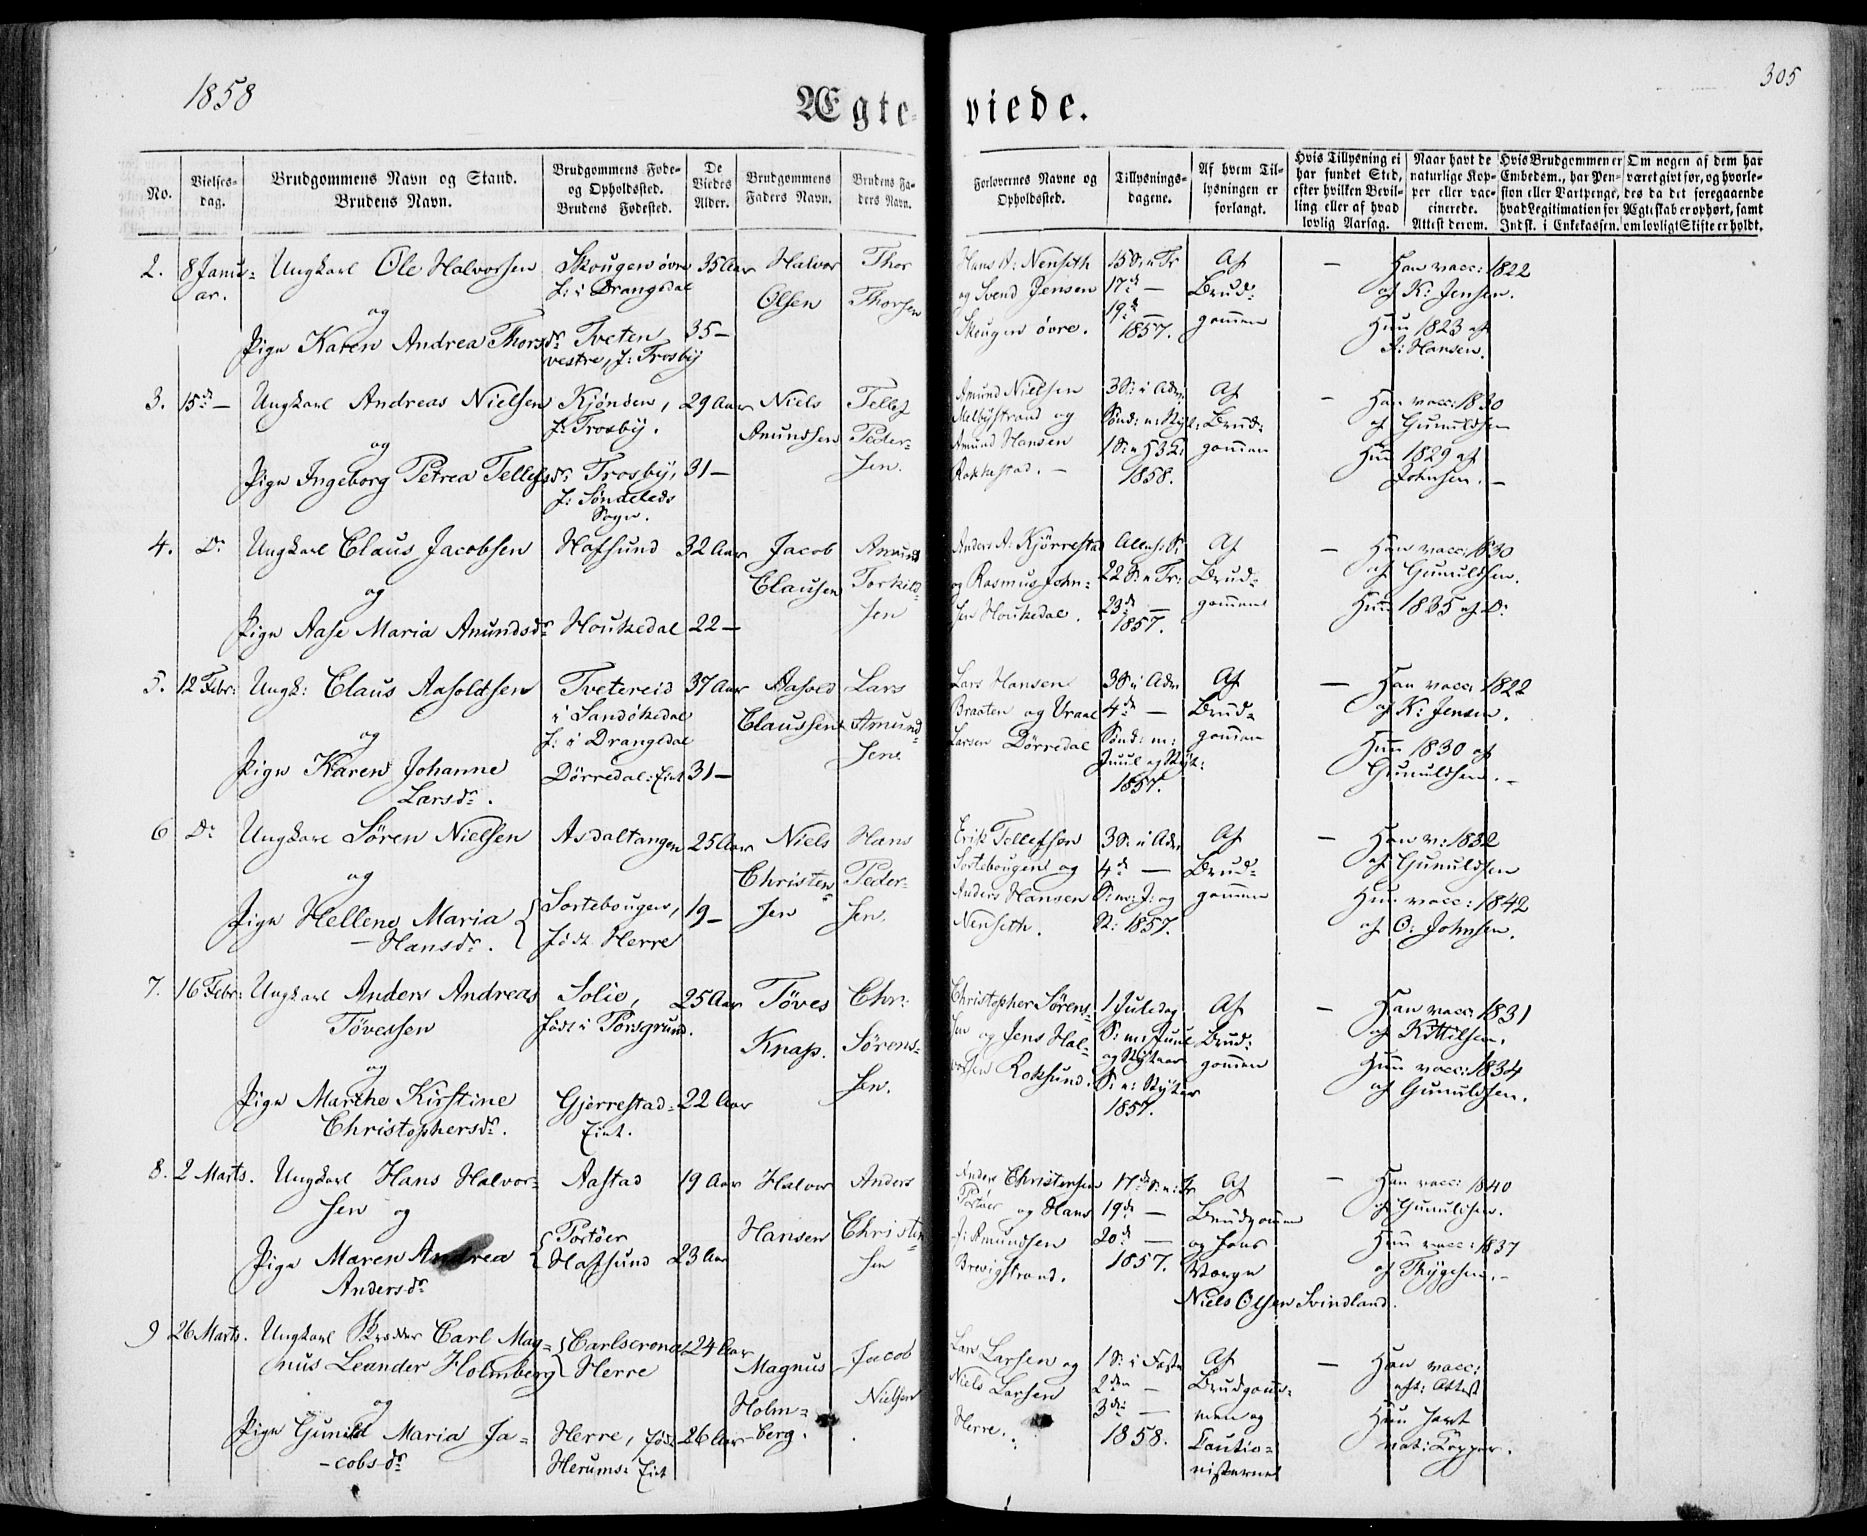 1858
305
Ægte-
viede.
No.
Vielses-
dag.
Brudgommens Navn og Stand.
Brudens Navn.
Brudgommens Føde-
og Opholdssted.
Brudens Fødested.
De
Viedes
Alder.
Brudgommens
Faders Navn.
Brudens Fa-
ders Navn.
Forlovernes Navne og
Opholdssted.
Tillysnings-
dagene.
Af hvem Til-
lysningen er
forlangt.
Hvis Tillysning ei
har fundet Sted,
efter hvilken Bevil-
ling eller af hvad
lovlig Aarsag.
Naar havt de
naturlige Kop-
per eller vac-
cinerede.
Attest derom.
Hvis Brudgommen er
Embedsm., har Pen-
sion eller Vartpenge,
hvad Legitimation for
Indsk. i Enkekassen.
Om nogen af dem har
været givt før, og hvorle-
des da det foregaaende
Ægteskab er ophørt, samt
om lovligt Skifte er holdt.
2.
8 Janu-
ar.
Ungkarl Ole Halvorsen
og
Pige Karen Andrea Thorsdr
Skougen øvre
f: i Drangedal
Tveten
vestre, f: Trosby
35 Aar
35 —
Halvor
Olsen
Thor
Thorsen
Hans A: Nenseth
og Svend Jensen
Skougen øvre.
15 S: n Tr
17de —
19de —
1857.
Af
Brud-
gommen
—
Han vacc: 1822
af K: Jensen.
Hun 1823 af
J: Hansen.
3.
15de —
Ungkarl Andreas Nielsen
og
Pige Ingeborg Petrea Tellefsdr
Kjønden,
f: Trosby.
Trosby,
f: Søndeleds
Sogn.
29 Aar
31 —
Niels
Amundsen
Tellef
Peder-
sen.
Amund Nielsen
Melbystrand og
Amund Hansen
Rakkestad. —
3 S: i Adv:
Sønd: n: Nyt:
1 S: n H3K:
1858.
Af
Brud-
gommen
—
Han vacc: 1830
af Gunuldsen
Hun 1829 af
Johnsen. —
4.
Do
Ungkarl Claus Jacobsen
og
Pige Aase Maria Amundsdr
Hafsund
Houkedal
32 Aar
22 —
Jacob
Clausen
Amund
Torkild-
sen
Anders A: Kjørrestad
og Rasmus John-
sen Houkedal.
Alleh: S:
22 S: n Tr:
23de —
1857.
Af
Brud-
gommen
—
Han vacc: 1830
af Gunuldsen.
Hun 1835 af Do
5.
12 Febr:
Ungk: Claus Aasoldsen
og
Pige Karen Johanne
Larsdr.
Tvetereid
i Sandøkedal
f: i Drangedal
Dørredal: Eiet
37 Aar
31 —
Aasold
Claussen
Lars
Amund-
sen.
Lars Hansen
Braaten og Vraal
Larsen Dørredal
3 S: i Adv
4de —
Sønd: m:
Juul og Nyt:
1857.
Af
Brud-
gommen
—
Han vacc: 1822
af K: Jensen.
Hun 1830 af
Gunuldsen. —
6
Do
Ungkarl Søren Nielsen
og
Pige Hellene Maria
Hansdr.
Asdaltangen
Sortebougen,
født Herre
25 Aar
19 —
Niels
Christen-
sen
Hans
Peder-
sen.
Erik Tellefsen
Sortebougen og
Anders Hansen
Nenseth.
3 S: i Adv
4de —
S: m: J: og
N: 1857.
Af
Brud-
gommen
—
Han v: 1832
af Gunuldsen
Hun vacc: 1842
af O: Johnsen.
7.
16 Febr:
Ungkarl Anders Andreas
Tövessen
og
Pige Marthe Kirstine
Christophersdr.
Solie,
født i Porsgrund.
Gjerrestad-
Eiet.
25 Aar
22 Aar
Töves
Knap.
Chr:
Sørens-
sen.
Christopher Sørens-
sen og Jens Hal-
vorsen Roksund.
1 Juledag
S: m: Juul
og Nytaar
S: n: Nytaar
1857.
Af
Brud-
gommen
—
Han vacc: 1831
af Kittilsen.
Hun vacc: 1834
af Gunuldsen.
8.
2 Marts.
Ungkarl Hans Halvor-
sen og
Pige Maren Andrea
Andersdr
Aastad
Portöer
Hafsund
19 Aar
23 Aar
Halvor
Hansen
Anders
Christen-
sen
Anders Christensen
Portöer og Hans
J: Amundsen
Brevigstrand.
17de S: n: Tr
19de —
20de —
1857.
Af
Brudgommen
og hans
Værge
Niels Olsen Svindland.
—
Han vacc: 1840
af Gunuldsen.
Hun vacc: 1837
af Thygesen. —
9
26 Marts.
Ungkarl Skrædder Carl Mag-
nus Leander Holmberg
og
Pige Gunild Maria Ja-
cobsdr
Carlscrona
Herre
Herre, født
Herums: Eiet
24 Aar
26 Aar
Magnus
Holm-
berg.
Jacob
Nielsen
Lars Larsen og
Niels Larsen
Herre.
1 S: i Faste
2den —
3die —
1858.
Af
Brudgom-
men og
Cautio-
nisterne
—
Han vacc:
eft: Attest
Hun havt
nat: Kopper.